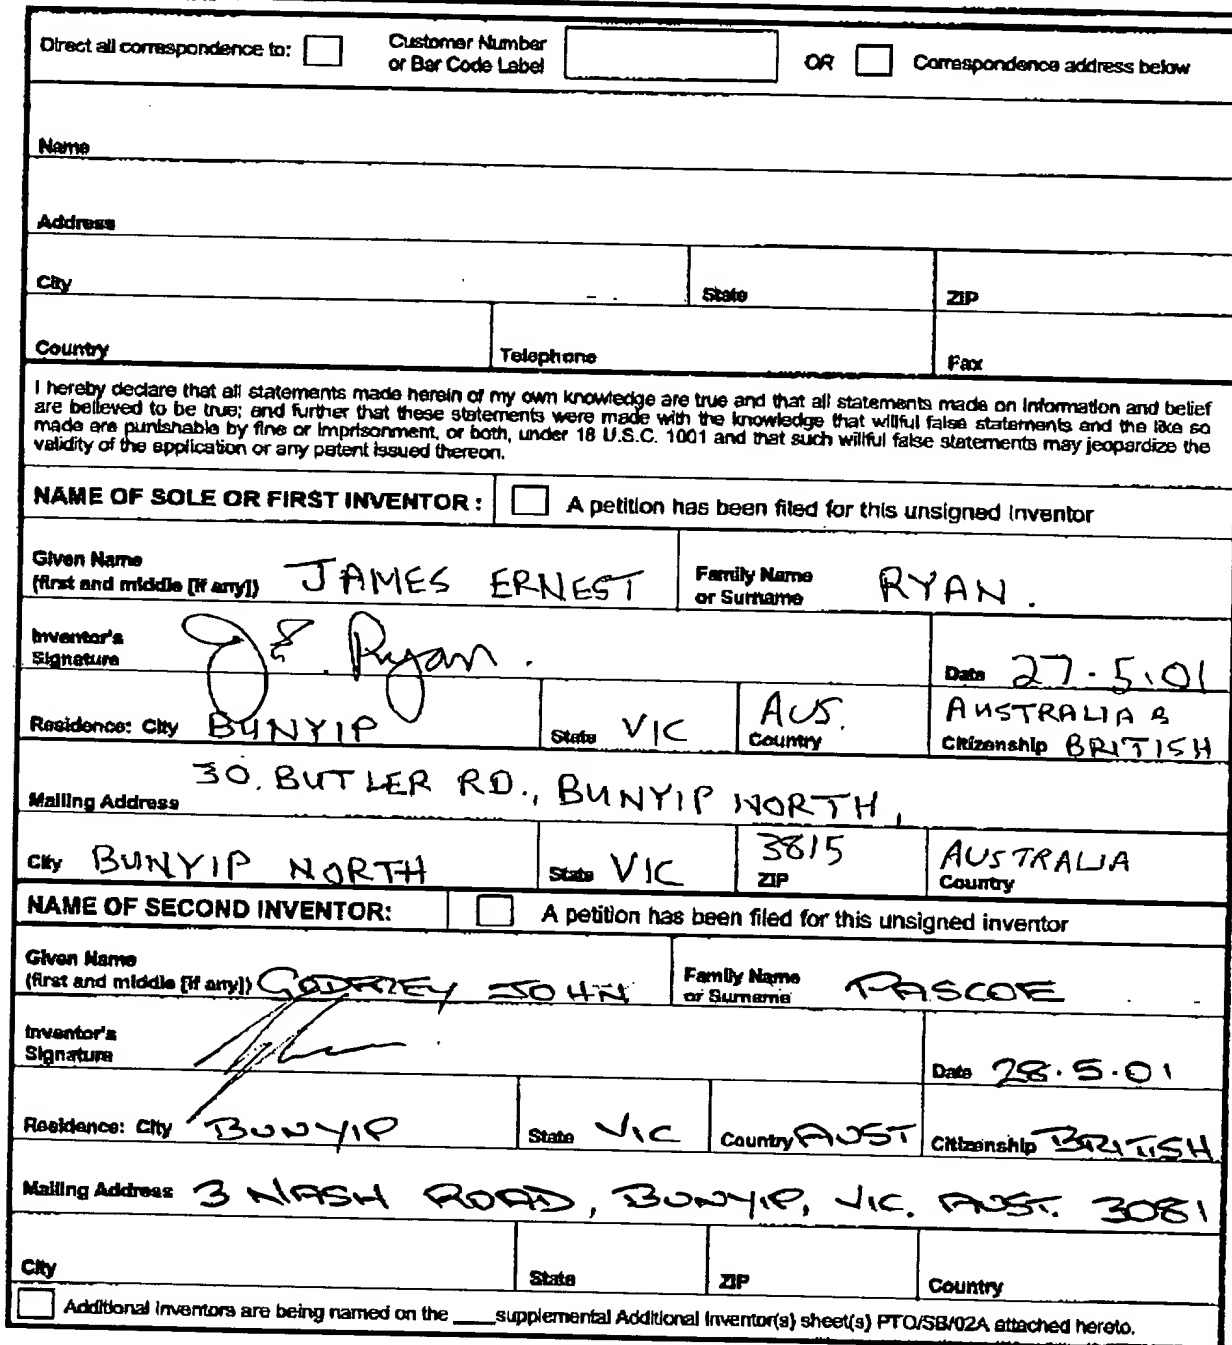 Direct all correspondence to: Customer Number or Bar Code Label OR Correspondence address below
Name
Address
City State ZIP
Country Telephone Fax
I hereby declare that all statements made herein of my own knowledge are true and that all statements made on information and belief
are believed to be true; and further that these statements were made with the knowledge that willful false statements and the like so
made are punishable by fine or imprisonment, or both, under 18 U.S.C. 1001 and that such willful false statements may jeopardize the
validity of the application or any patent issued thereon.
NAME OF SOLE OR FIRST INVENTOR : A petition has been filed for this unsigned inventor
Given Name
(first and middle [if any]) JAMES ERNEST Family Name or Surname RYAN.
Inventor's
Signature J E. Ryan. Date 27.5.01
Residence: City BUNYIP State VIC AUS. Country AUSTRALIA & Citizenship BRITISH
Mailing Address 30. BUTLER RD., BUNYIP NORTH,
City BUNYIP NORTH State VIC 3815 ZIP AUSTRALIA Country
NAME OF SECOND INVENTOR: A petition has been filed for this unsigned inventor
Given Name
(first and middle [if any]) GODFREY JOHN Family Name or Surname PASCOE
Inventor's
Signature Date 28.5.01
Residence: City BUNYIP State VIC Country AUST Citizenship BRITISH
Mailing Address 3 NASH ROAD, BUNYIP, VIC. AUST. 3081
City State ZIP Country
Additional inventors are being named on the ____supplemental Additional Inventor(s) sheet(s) PTO/SB/02A attached hereto.